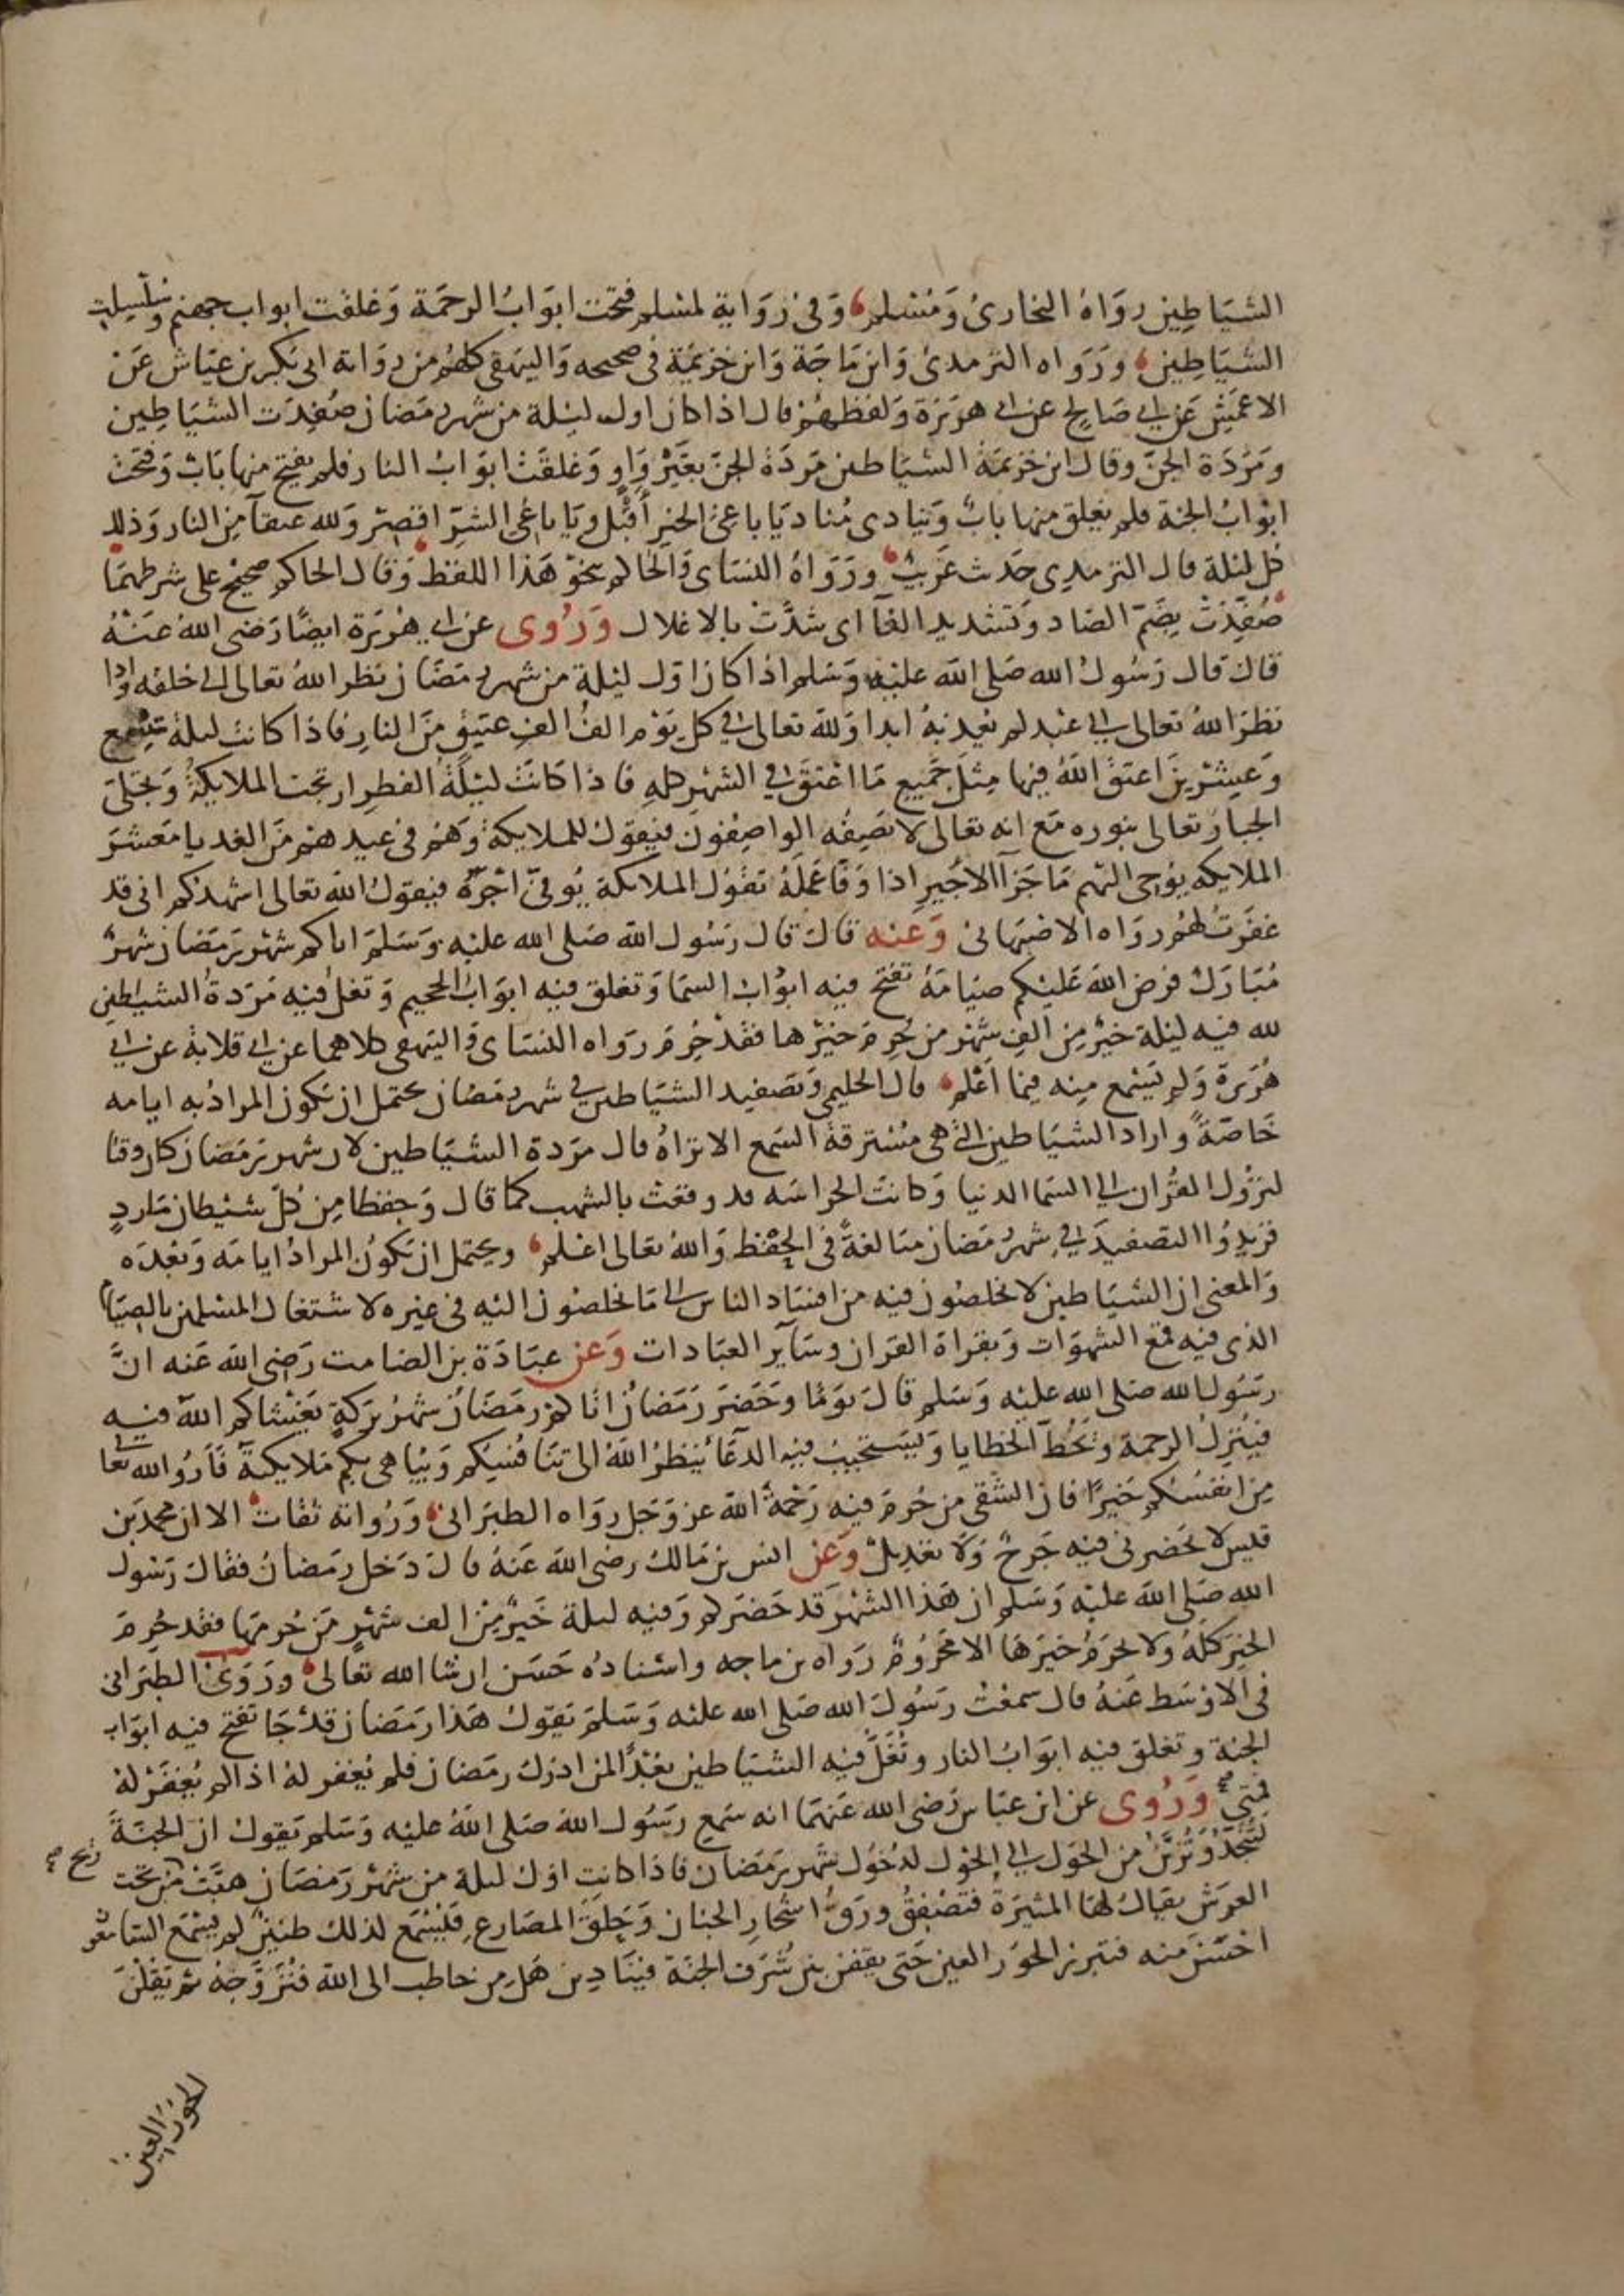 الشياطين رواه البخارى ومسلم وفى رواية لمسلم فتحت ابواب الرحمة وغلقت ابواب جهنم وسلسلت
الشياطين ورواه الترمذى وابن ماجة وابن خزيمة فى صحيحه والبيهقى كلهم من رواية ابى بكر بن عياش عن
الاعمش عن ابى صالح عن ابى هريرة ولفظهم قال اذا كان اول ليلة من شهر رمضان صفدت الشياطين
ومردة الجن وقال ابن خزيمة الشياطين مردة الجن بغير واو وغلقت ابواب النار فلم يفتح منها باب وفتحت
ابواب الجنة فلم يغلق منها باب وينادى مناد يا باغى الخير أقبل ويا باغى الشر اقصر ولله عتقآ من النار وذلك
كل ليلة قال الترمذى حديث غريب ورواه النساى والحاكم بنحو هذا اللفظ وقال الحاكم صحيح على شرطهما
صفدت بضم الصاد وتشديد الفآ اى شدت بالاغلال وروى عن ابى هريرة ايضا رضى الله عنه
قال قال رسول الله صلى الله عليه وسلم اذا كان اول ليلة من شهر رمضان نظر الله تعالى الى خلقه واذا
نظر الله تعالى الى عبد لم يعذبه ابدا ولله تعالى فى كل يوم الف الف عتيق من النار فاذا كانت ليلة تسع
وعشرين اعتق الله فيها مثل جميع ما اعتق فى الشهر كله فاذا كانت ليلة الفطر ارتجت الملايكة وتجلى
الجبار تعالى بنوره مع انه تعالى لا تصفه الواصفون فيقول للملايكة وهم فى عيدهم من الغد يا معشر
الملايكه يوحى اليهم ما جزآ الاجير اذا وفا عمله تقول الملايكة يوفى اجره فيقول الله تعالى اشهدكم انى قد
غفرت لهم رواه الاصبهانى وعنه قال قال رسول الله صلى الله عليه وسلم اتاكم شهر رمضان شهر
مبارك فرض الله عليكم صيامه تفتح فيه ابواب السما وتغلق فيه ابواب الجحيم وتغل فيه مردة الشياطين
لله فيه ليلة خير من الف شهر من حرم خيرها فقد حرم رواه النساى والبيهقى كلاهما عن ابى قلابة عن ابى
هريرة ولم يسمع منه فيما اعلم قال الحليمى وتصفيد الشياطين فى شهر رمضان يحتمل ان يكون المراد به ايامه
خاصة واراد الشياطين التى هى مسترقة السمع الا تراه قال مردة الشياطين لان شهر رمضان كان وقتا
لنزول القران الى السما الدنيا وكانت الحراسه قد وقعت بالشهب كما قال وحفظا من كل شيطان مارد
فزيدوا التصفيد فى شهر رمضان مبالغة فى الحفظ والله تعالى اعلم ويحتمل ان يكون المراد ايامه وبعده
والمعنى ان الشياطين لا يخلصون فيه من افساد الناس الى ما يخلصون اليه فى غيره لاشتغال المسلمين بالصيام
الذى فيه قمع الشهوات وبقراة القران وسآير العبادات وعن عبادة بن الصامت رضى الله عنه ان
رسول الله صلى الله عليه وسلم قال يوما وحضر رمضان اتاكم رمضان شهر بركة يغشاكم الله فيه
فينزل الرحمة وتحط الخطايا ويستجيب فيه الدعآ ينظر الله الى تنافسكم ويباهى بكم ملايكته فآروا الله تعالى
من انفسكم خيرا فان الشقى من حرم فيه رحمة الله عز وجل رواه الطبرانى ورواته ثقات الا ان محمد بن
قيس لا يحضرنى فيه جرح ولا تعديل وعن انس بن مالك رضى الله عنه قال دخل رمضان فقال رسول
الله صلى الله عليه وسلم ان هذا الشهر قد حضركم وفيه ليلة خير من الف شهر من حرمها فقد حرم
الخير كله ولا يحرم خيرها الا محروم رواه بن ماجه واسناده حسن ان شا الله تعالى وروى الطبرانى
فى الاوسط عنه قال سمعت رسول الله صلى الله عليه وسلم يقول هذا رمضان قد جا تفتح فيه ابواب
الجنة وتغلق فيه ابواب النار وتغل فيه الشياطين بعدا لمن ادرك رمضان فلم يغفر له اذا لم يغفر له
فمتى وروى عن ابن عباس رضى الله عنهما انه سمع رسول الله صلى الله عليه وسلم يقول ان الجنة
لتنجد وتزين من الحول الى الحول لدخول شهر رمضان فاذا كانت اول ليلة من شهر رمضان هبت من تحت
ريح صح
العرش يقال لها المثيرة فتصفق ورق اشجار الجنان وحلق المصارع فليسمع لذلك طنين لم يسمع السامعون
احسن منه فتبرز الحور العين حتى يقفن بين شرف الجنة فينادين هل من خاطب الى الله فنزوجه ثم يقلن
الحور العين